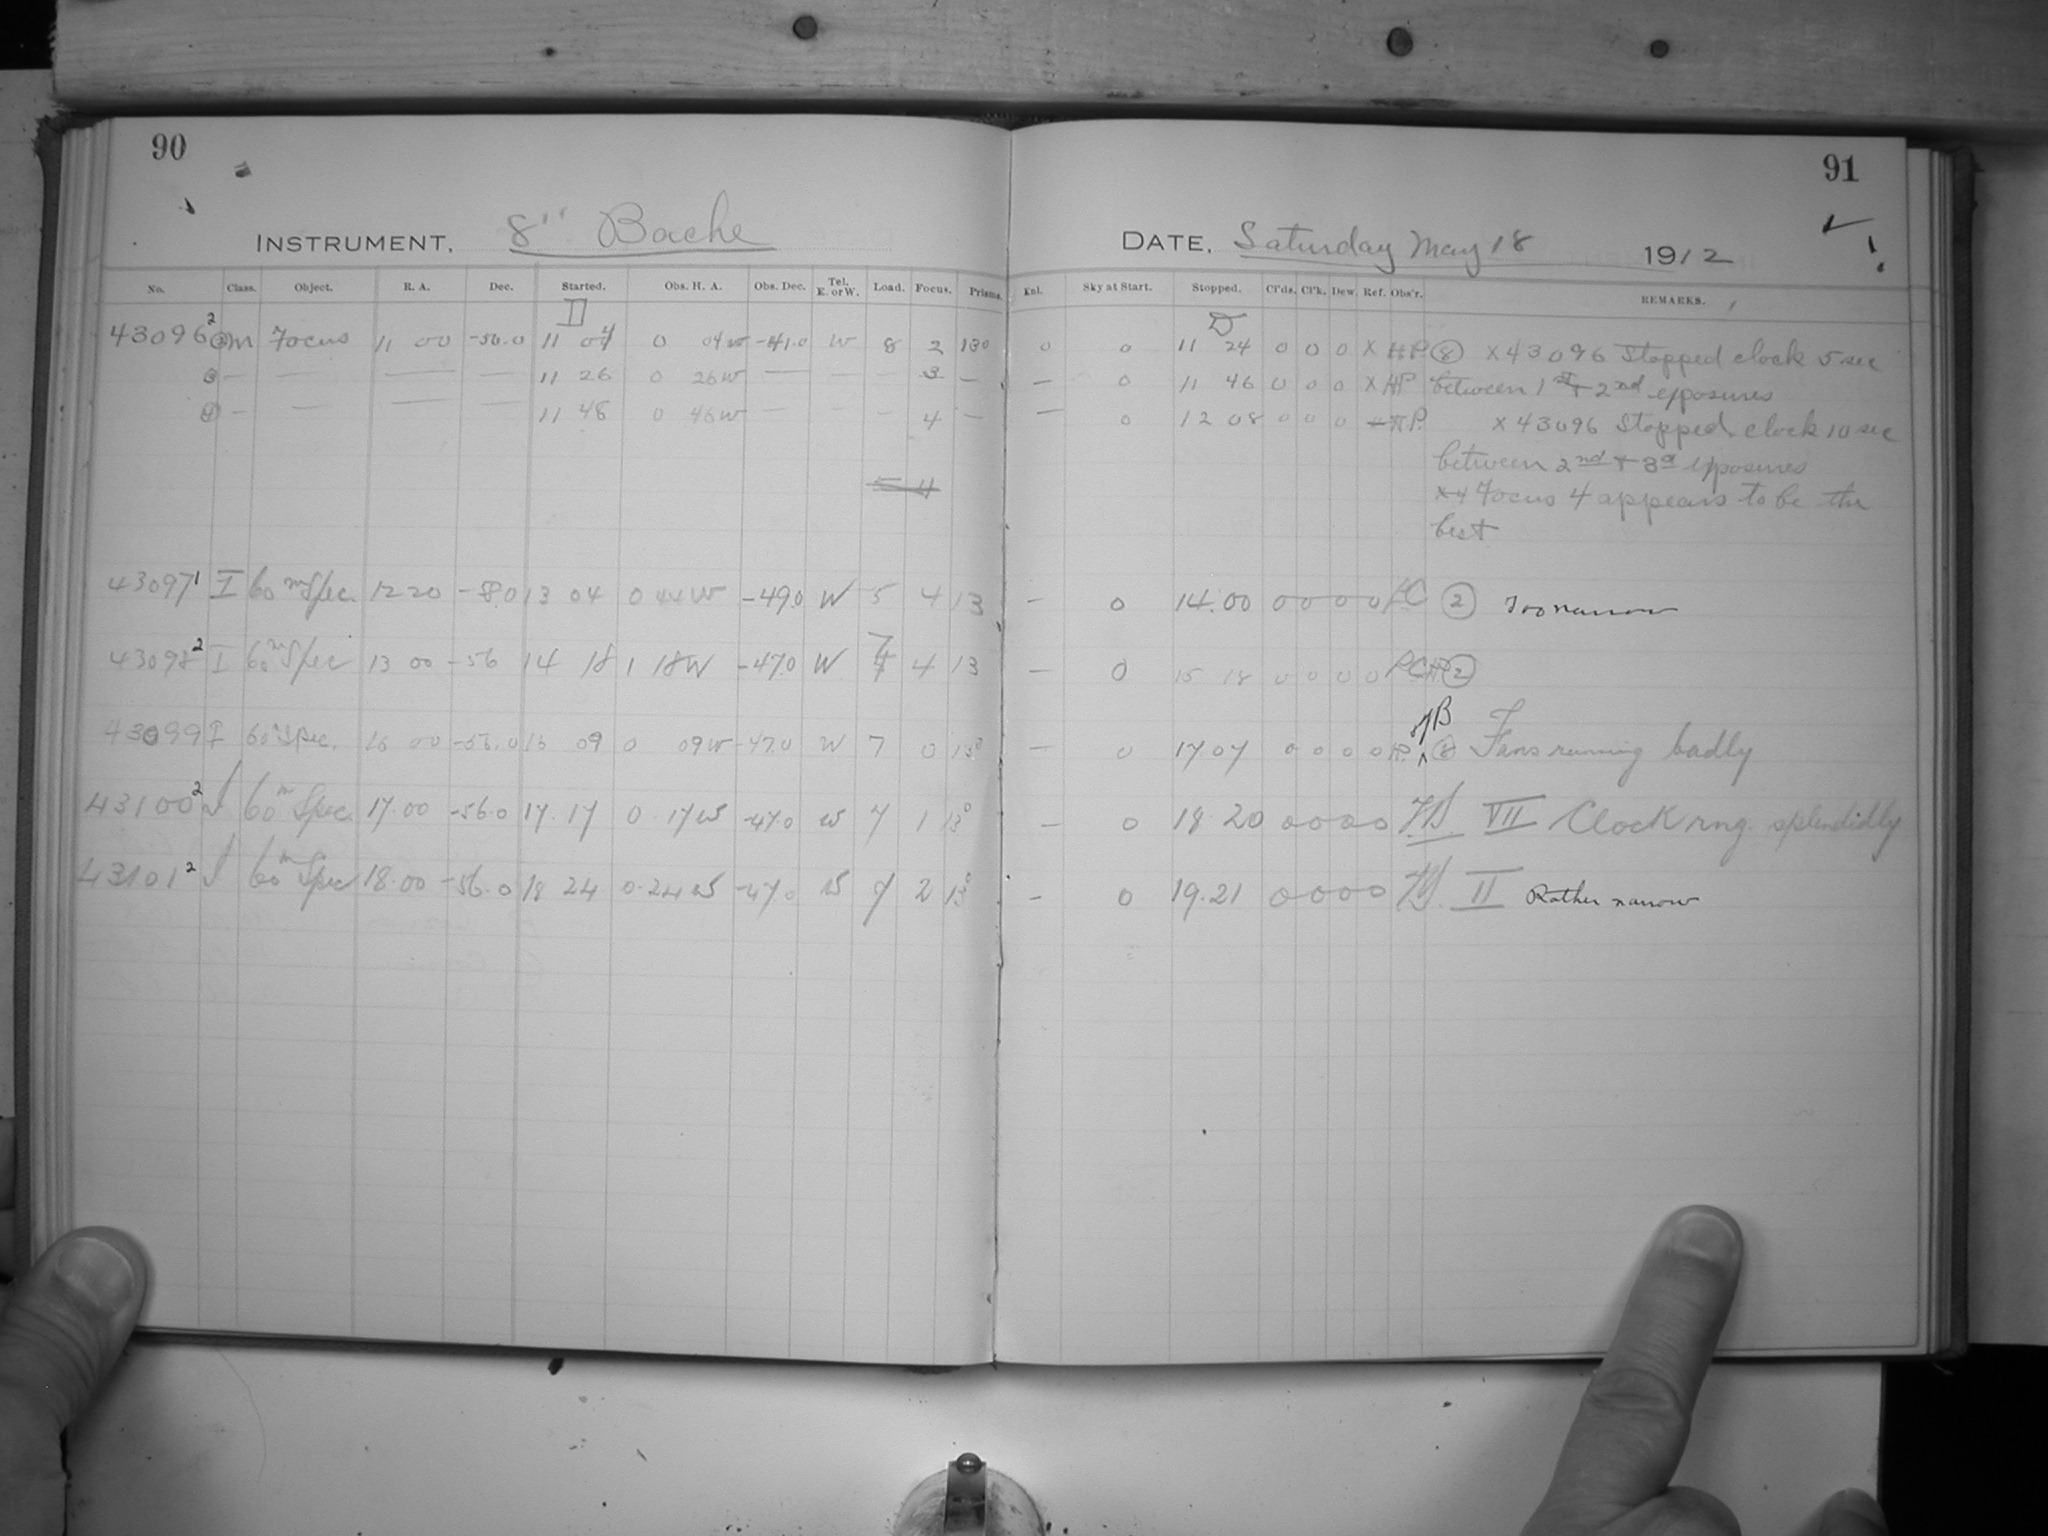 90
INSTRUMENT. 8" Bache
No. Class. Object. R. A. Dec. Started. Obs. H. A. Obs. Dec. Tel. E. or W. Load. Focus. Prisms.
43096 2 m Focus 11 00 -56.0 11 04 0 04W -41.0 W 8 2 130
3 — — — — 11 26 0 26W — — — 3 —
4 — — — — 11 48 0 48W — — — 4 —
43097 1 I 60m Spec. 12 20 -58.0 13 04 0 44W -49.0 W 5 4 13
43098 2 I 60m Spec 13 00 -56 14 18 1 18W -47.0 W 7 4 13
43099 I 60m Spec. 16 00 -56.0 16 09 0 09W -47.0 W 7 0 130
43100 2 I 60m Spec. 17.00 -56.0 17.17 0.17W -47.0 W 7 1 130
43101 2 I 60m Spec 18.00 -56.0 18 24 0.24W -47.0 W 7 2 130
91
DATE. Saturday May 18 1912
Enl. Sky at Start. Stopped. Cl'ds. Cl'k. Dew. Ref. Obs'r. REMARKS.
0 0 11 24 0 0 0 X HP 8 X 43096 Stopped clock 5 sec
— 0 11 46 0 0 0 X HP between 1st + 2nd exposures
— 0 12 08 0 0 0 — HP. X 43096 Stopped clock 10 sec
between 2nd + 3d exposures
Focus 4 appears to be the
best
— 0 14.00 0 0 0 0 2 Too narrow
— 0 15 18 0 0 0 0 2
— 0 17 07 0 0 0 0 HP. 8 Fans running badly
— 0 18 20 0 0 0 0 VII Clock rng. splendidly
— 0 19.21 0 0 0 0 II Rather narrow